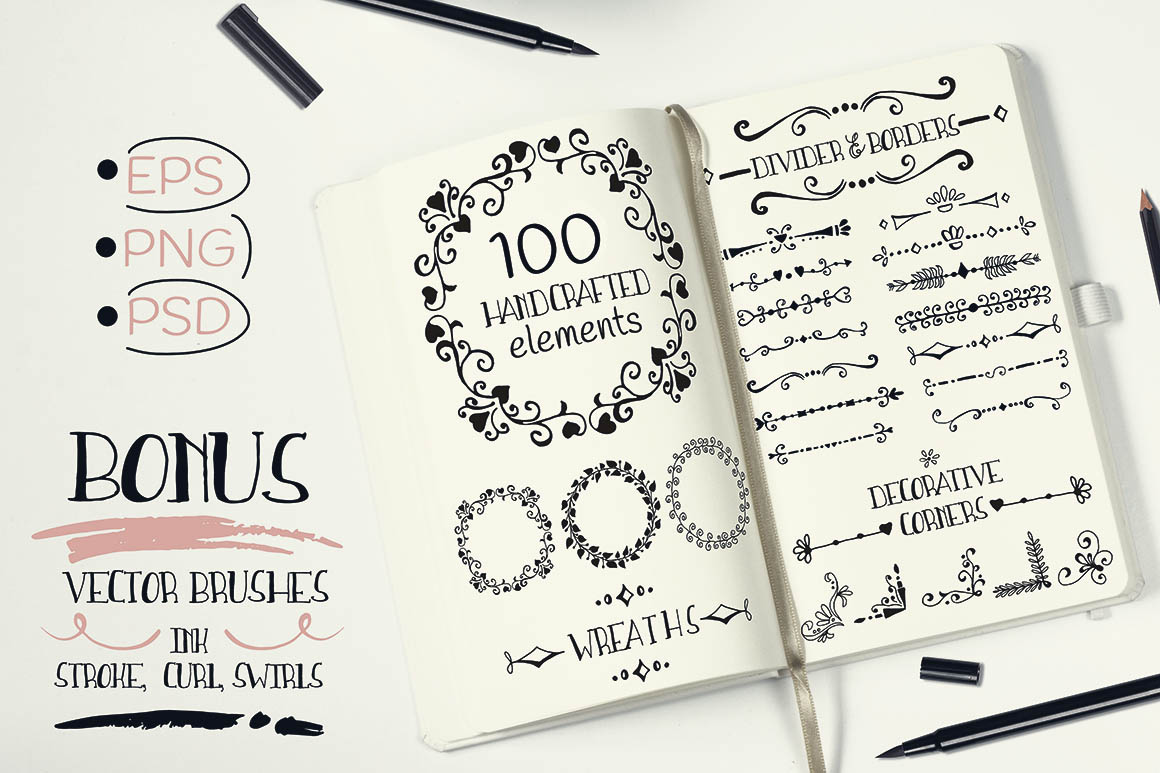 EPS
PNG
PSD
BONUS
VECTOR BRUSHES
INK
STROKE, CURL, SWIRLS
100
HANDCRAFTED
elements
WREATHS
DIVIDER & BORDERS
DECORATIVE
CORNERS